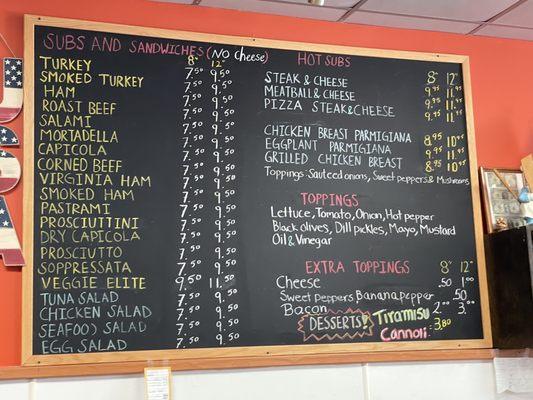 SUBS AND SANDWICHES (NO CHEESE)
8" 12"
TURKEY 7.50 9.50
SMOKED TURKEY 7.50 9.50
HAM 7.50 9.50
ROAST BEEF 7.50 9.50
SALAMI 7.50 9.50
MORTADELLA 7.50 9.50
CAPICOLA 7.50 9.50
CORNED BEEF 7.50 9.50
VIRGINIA HAM 7.50 9.50
SMOKED HAM 7.50 9.50
PASTRAMI 7.50 9.50
PROSCIUTTINI 7.50 9.50
DRY CAPICOLA 7.50 9.50
PROSCIUTTO 7.50 9.50
SOPPRESSATA 7.50 9.50
VEGGIE ELITE 9.50 11.50
TUNA SALAD 7.50 9.50
CHICKEN SALAD 7.50 9.50
SEAFOOD SALAD 7.50 9.50
EGG SALAD 7.50 9.50
HOT SUBS
8" 12"
STEAK & CHEESE 9.45 11.45
MEATBALL & CHEESE
PIZZA STEAK & CHEESE
CHICKEN BREAST PARMIGIANA 8.95 10.95
EGGPLANT PARMIGIANA
GRILLED CHICKEN BREAST 8.95 10.95
Toppings: Sauteed onions, Sweet peppers & Mushrooms
TOPPINGS
Lettuce, Tomato, Onion, Hot pepper
Black olives, Dill pickles, Mayo, Mustard
Oil & Vinegar
EXTRA TOPPINGS 8" 12"
Cheese .50 1.00
Sweet peppers Banana pepper .50
Bacon 2.00 3.00
DESSERTS! Tiramisu
Cannoli 3.80